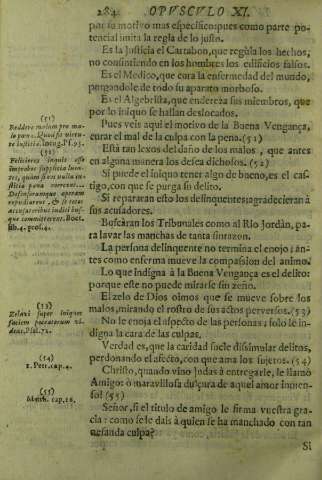 284 OPUSCULO XI.
por su motivo mas especifico: pues como parte po-
tencial imita la regla de lo justo.
Es la Justicia el Cartabon, que regula los hechos,
no consintiendo en los hombres los edificios falsos.
Es el Medico, que cura la enfermedad del mundo,
purgandole de todo su aparato morboso.
Es el Algebrista, que endereza sus miembros, que
por lo iniquo se hallan deslocados.
Pues veis aqui el motivo de la Buena Vengança,
curar el mal de la culpa con la pena. (51)
Està tan lexos del daño de los malos, que antes
en alguna manera los desea dichosos. (52)
Si puede el iniquo tener algo de bueno, es el cas-
tigo, con que se purga su delito.
Si repararan esto los delinquentes, agradecieran à
sus acusadores.
Buscàran los Tribunales como al Rio Jordàn, pa-
ra lavar las manchas de tanta sinrazon.
La persona delinquente no termina el enojo; an-
tes como enferma mueve la compassion del animo.
Lo que indigna à la Buena Vengança es el delito:
porque este no puede mirarse sin zeño.
El zelo de Dios oimos que se mueve sobre los
malos, mirando el rostro de sus actos perversos. (53)
No le enoja el aspecto de las personas; solo le in-
digna la cara de las culpas.
Verdad es, que la caridad suele dissimular delitos,
perdonando el afecto, con que ama los sujetos. (54)
Christo, quando vino Judas à entregarle, le llamò
Amigo: ò maravillosa dulçura de aquel amor inmen-
so! (55)
Señor, si el titulo de amigo le firma vuestra gra-
cia: como se le dais à quien se ha manchado con tan
nefanda culpa?
Si
(51)
Reddere malum pro ma-
lo pure.
(52)
Feliciores
improbos supplicia luen-
tes, quàm si eos nulla iu-
stitia pœna coerceat...
Defensorumque operam
repudiarent, & se totos
accusatoribus iudicibus-
que committerent. Boet.
lib. 4. pros. 4.
(53)
Zelavi super iniquos
pacem peccatorum vi-
dens. Psal. 72.
(54)
1. Petr. cap. 4.
(55)
Matth. cap. 26.